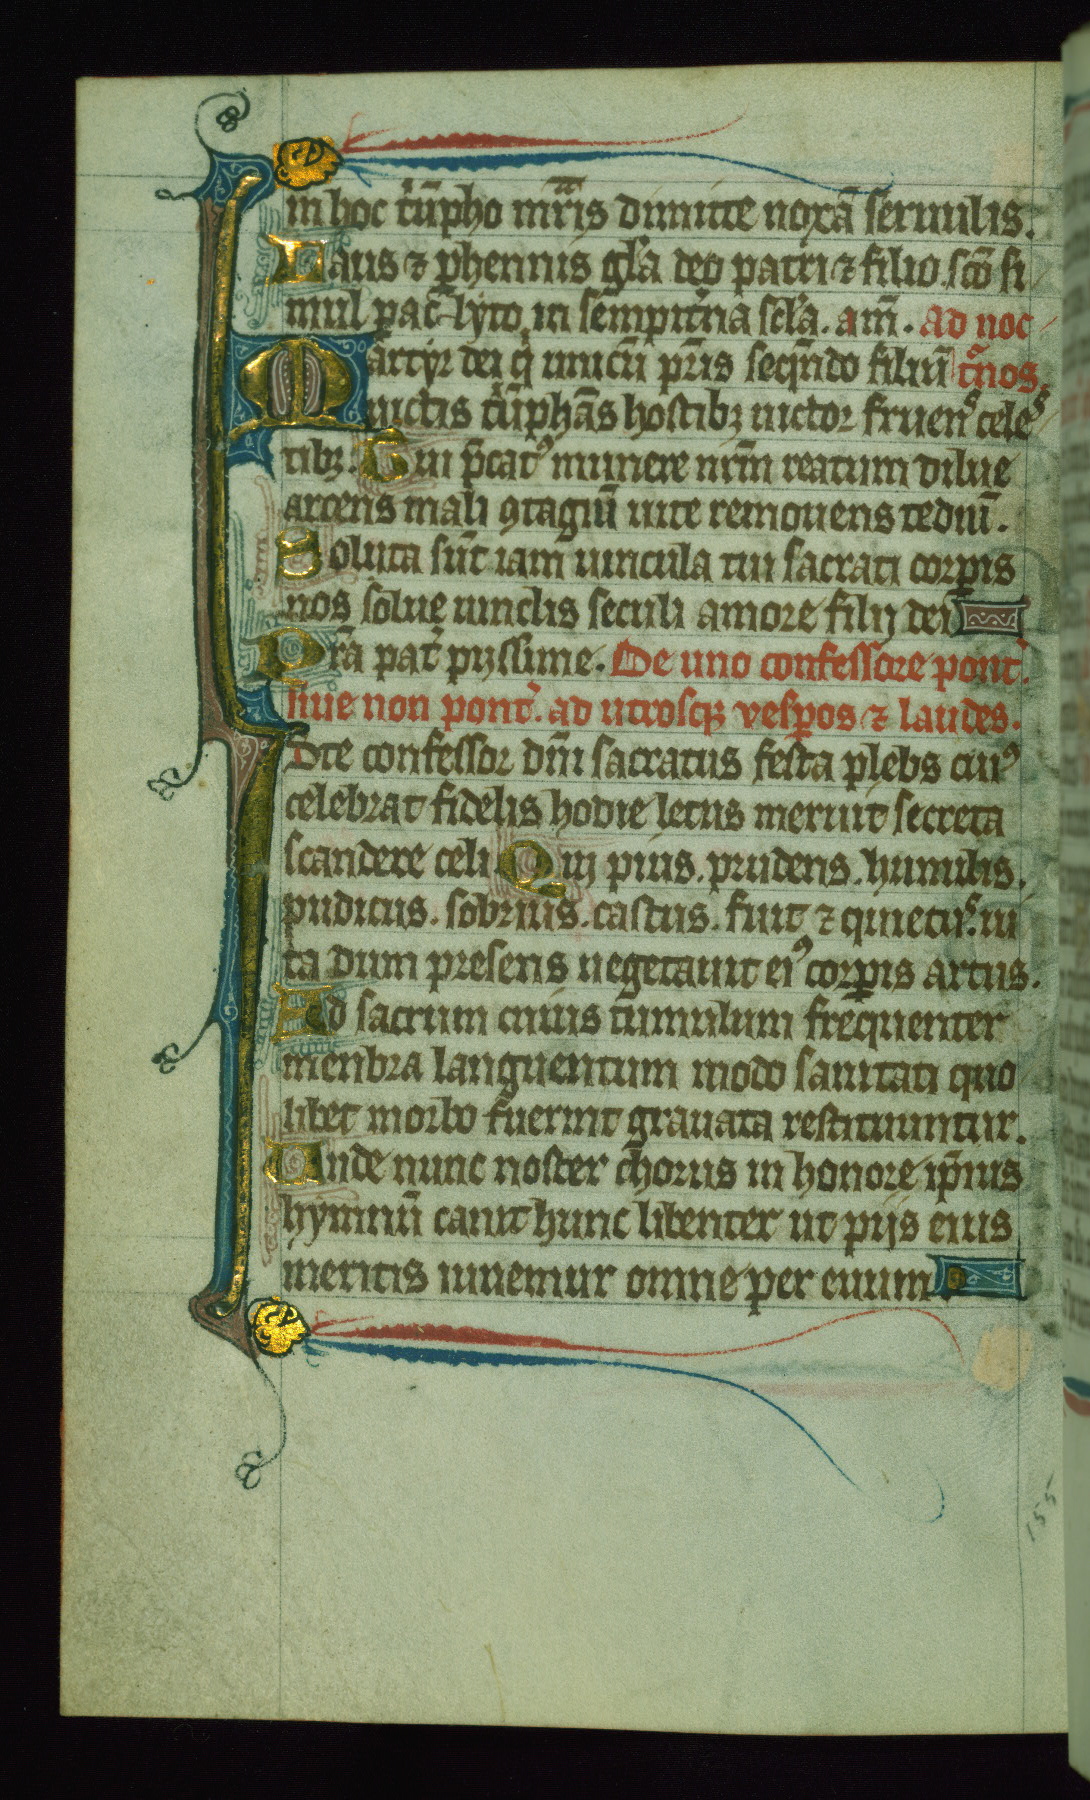 in hoc t'ũpho mr̃is dimitte noxã seruulis.
Laus ⁊ ꝑhennis gl'a deo patri ⁊ filio. sc̃o si
mul pac̃lyto in sẽmpit'na sc̃la. am̃. ad noc
Martyr dei q̇ unicũ pr̃is seqñdo filiũ t'nos.
inictis t'ũphãs hostibꝫ uictor fruenˢ celeˢ
tibꝫ. Tui p̃catꝰ munere nr̃m reatum dilue
arcens mali ꝯtagiũ uite remouens tediũ.
Soluta sũt iam uincula tui sacrati corꝑis
nos solue iunclis seculi amore filij dei
Pr̃a pat' pijssime. De uno confessore pont'.
siue non pont'. ad utrosqꝫ vesꝑos ⁊ laudes.
Iste confessor dñi sacratus festa plebs cuiꝰ
celebrat fidelis hodie letus meruit secreta
scandere celi. Qui pius. prudens. humilis.
pudicus. sobrius. castus. fuit ⁊ quietuˢ. ui
ta dum presens uegetauit eiꝰ corꝑis artus.
Ad sacrum cuius tumulum frequenter
menbra languentum modo sanitati quo
libet morbo fuerint grauata restituuntur.
Unde nunc noster chorus in honore ip̃ius
hymnũ canit hunc libenter ut pijs eius
meritis iuuemur omne per euum
155